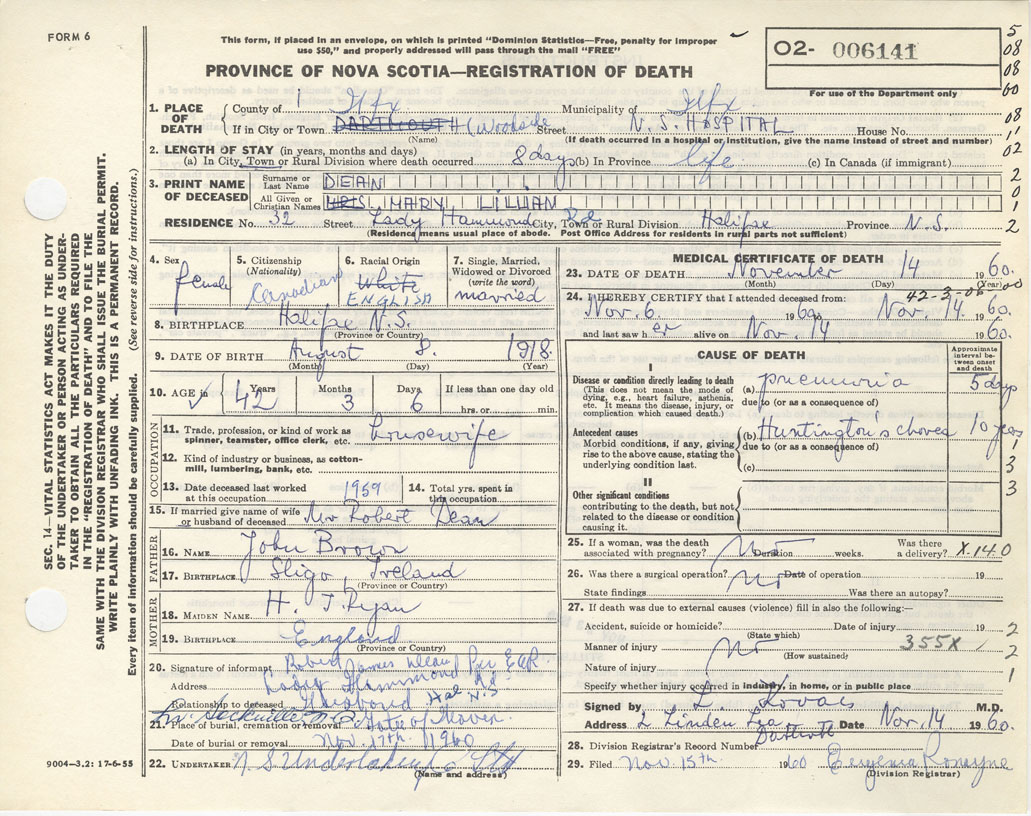 FORM 6
This form, if placed in an envelope, on which is printed "Dominion Statistics—Free, penalty for improper
use $50," and properly addressed will pass through the mail "FREE"
PROVINCE OF NOVA SCOTIA—REGISTRATION OF DEATH
02- 006141
For use of the Department only
5
08
08
60
08
11
02
2
0
1
2
SEC. 14—VITAL STATISTICS ACT MAKES IT THE DUTY
OF THE UNDERTAKER OR PERSON ACTING AS UNDER-
TAKER TO OBTAIN ALL THE PARTICULARS REQUIRED
IN THE "REGISTRATION OF DEATH" AND TO FILE THE
SAME WITH THE DIVISION REGISTRAR WHO SHALL ISSUE THE BURIAL PERMIT.
WRITE PLAINLY WITH UNFADING INK. THIS IS A PERMANENT RECORD.
Every item of information should be carefully supplied. (See reverse side for instructions.)
1. PLACE OF DEATH County of Hfx Municipality of Hfx
If in City or Town DARTMOUTH (Woodside Street N.S. HOSPITAL House No.
(Name) (If death occurred in a hospital or institution, give the name instead of street and number)
2. LENGTH OF STAY (in years, months and days)
(a) In City, Town or Rural Division where death occurred 8 days (b) In Province life (c) In Canada (if immigrant)
3. PRINT NAME OF DECEASED Surname or Last Name DEAN
All Given or Christian Names MRS. MARY LILLIAN
RESIDENCE No. 32 Street Lady Hammond Rd City, Town or Rural Division Halifax Province N.S.
(Residence means usual place of abode. Post Office Address for residents in rural parts not sufficient)
4. Sex female
5. Citizenship (Nationality) Canadian
6. Racial Origin White ENGLISH
7. Single, Married, Widowed or Divorced (write the word) married
8. BIRTHPLACE Halifax N.S.
(Province or Country)
9. DATE OF BIRTH August 8. 1918.
(Month) (Day) (Year)
10. AGE in Years 42 Months 3 Days 6 If less than one day old hrs. or min.
OCCUPATION
11. Trade, profession, or kind of work as spinner, teamster, office clerk, etc. housewife
12. Kind of industry or business, as cotton-mill, lumbering, bank, etc.
13. Date deceased last worked at this occupation 1959
14. Total yrs. spent in this occupation
15. If married give name of wife or husband of deceased Mr Robert Dean
FATHER
16. NAME John Brown
17. BIRTHPLACE Sligo, Ireland
(Province or Country)
MOTHER
18. MAIDEN NAME H. J. Ryan
19. BIRTHPLACE England
(Province or Country)
20. Signature of informant Robert James Dean Per
Address Lady Hammond Rd
Relationship to deceased Husband Hal N.S
21. Place of burial, cremation or removal Sackville N.S. Gate of Heaven
Date of burial or removal Nov. 17th. 1960
22. UNDERTAKER N.S Undertaking
(Name and address)
9004—3.2: 17-6-55
MEDICAL CERTIFICATE OF DEATH
23. DATE OF DEATH November 14 1960.
(Month) (Day) (Year)
24. I HEREBY CERTIFY that I attended deceased from:
Nov. 6. 1960 Nov. 14. 1960.
and last saw her alive on Nov. 14 1960.
CAUSE OF DEATH
Approximate interval between onset and death
I
Disease or condition directly leading to death
(This does not mean the mode of dying, e.g., heart failure, asthenia, etc. It means the disease, injury, or complication which caused death.)
(a) pneumonia 5 days
due to (or as a consequence of)
Antecedent causes
Morbid conditions, if any, giving rise to the above cause, stating the underlying condition last.
(b) Huntington's chorea 10 years
due to (or as a consequence of)
(c)
1
3
3
II
Other significant conditions
contributing to the death, but not related to the disease or condition causing it.
25. If a woman, was the death associated with pregnancy? No Duration weeks. Was there a delivery? X.140
26. Was there a surgical operation? No Date of operation 19
State findings Was there an autopsy?
27. If death was due to external causes (violence) fill in also the following:—
Accident, suicide or homicide? Date of injury 19 2
(State which)
Manner of injury No 355X 2
(How sustained)
Nature of injury 1
Specify whether injury occurred in industry, in home, or in public place
Signed by L. M.D.
Address 2 Linden Lea Dartmouth Date Nov. 14 1960.
28. Division Registrar's Record Number
29. Filed Nov. 15th 1960 Eugenia Romayne
(Division Registrar)